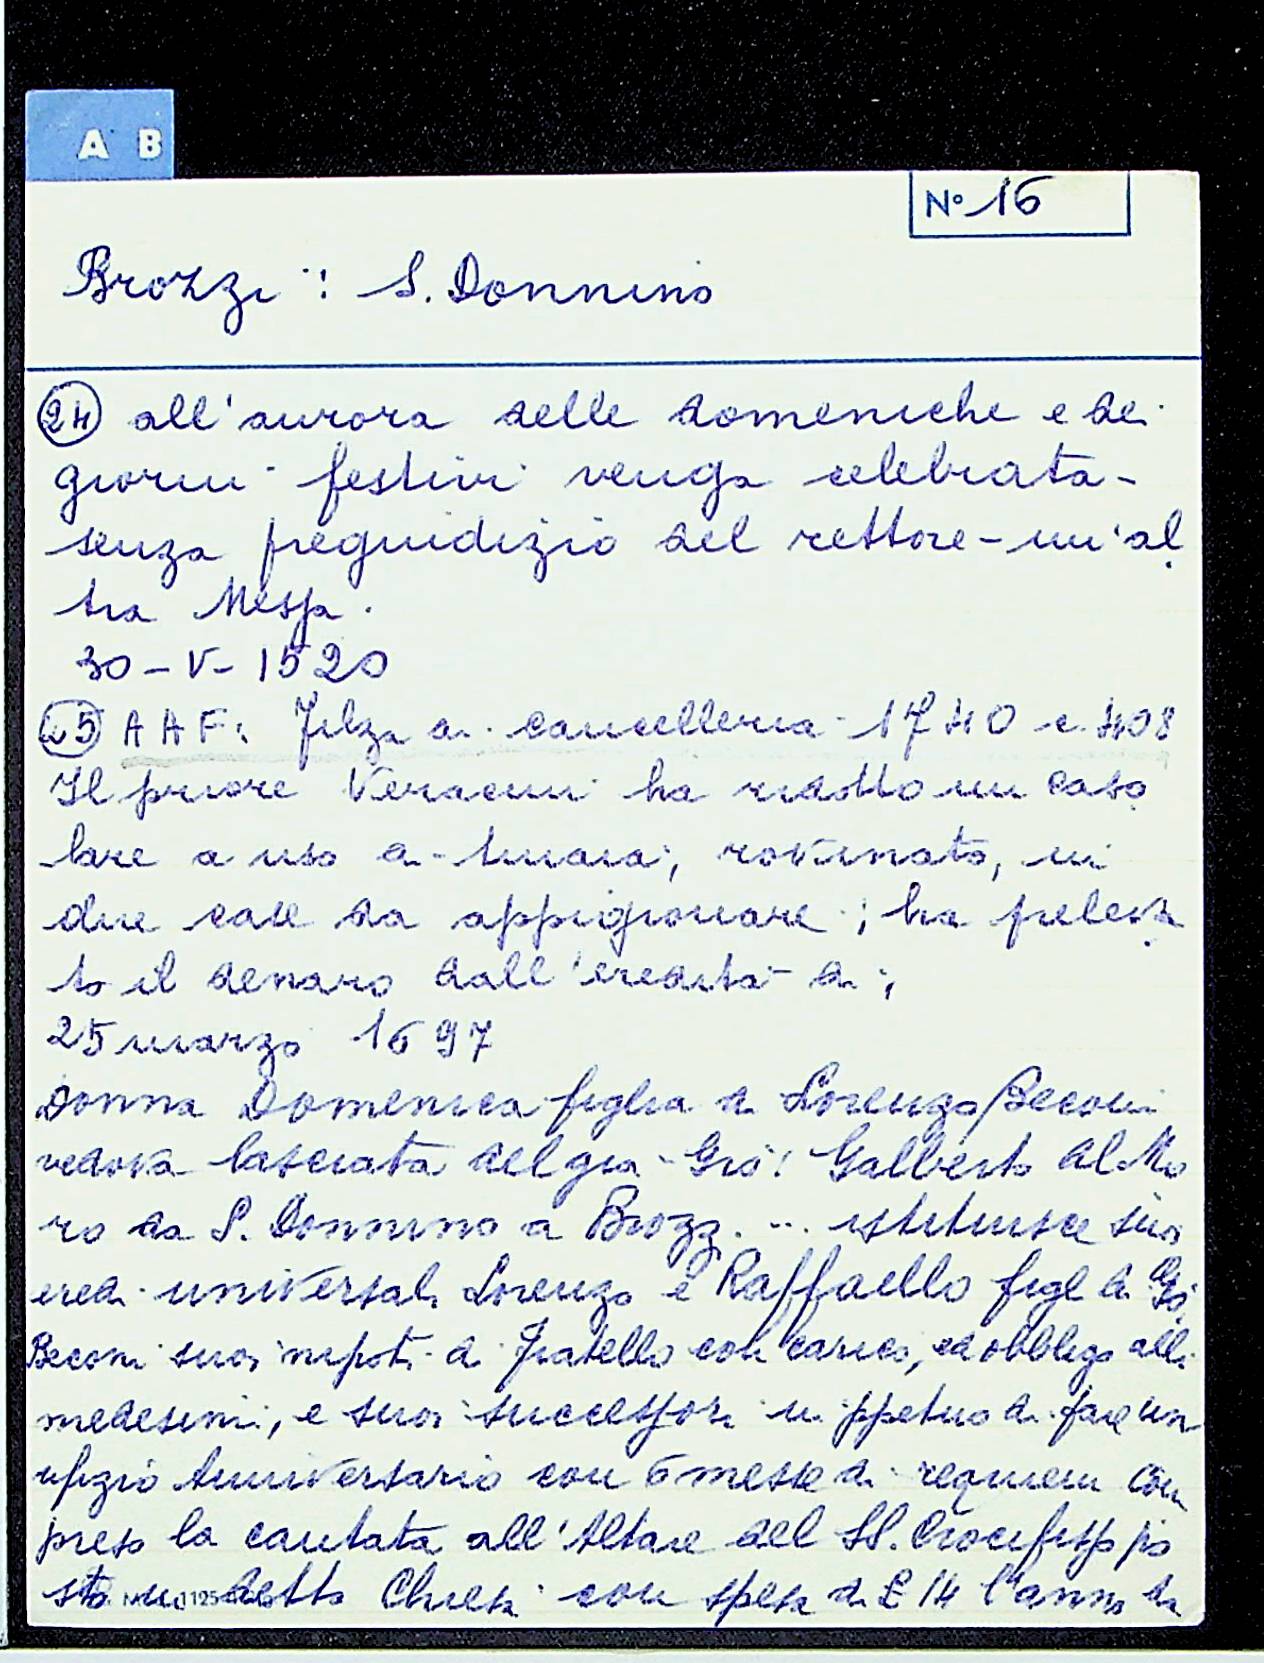 A B
N° 16
Brozzi: S. Donnino
24 all'aurora delle domeniche e dei
giorni festivi venga celebrata-
senza pregiudizio del rettore-un'al
tra Messa.
30-V-1520
25 AAF: Filza di cancelleria 1740 c. 408
Il priore Veracini ha ridotto un caso
lare a uso di tinaia, rovinato, in
due case da appigionare; ha preleva
to il denaro dall'eredità di;
25 marzo 1697
Donna Domenica figlia di Lorenzo Beconi
vedova lasciata del gia Gio: Galberto del Mo
ro da S. Donnino a Brozzi ... istituisce suoi
eredi universali Lorenzo e Raffaello figli di Gio
Beconi suoi nipoti di fratello con carico, ed obbligo alli
medesimi, e suoi successori in ppetuo di fare un
ufizio Anniversario con 6 messe di requiem com
preso la cantata all'Altare del SS. Crocifisso po
sto in detta Chiesa con spesa di £ 14 l'anno da